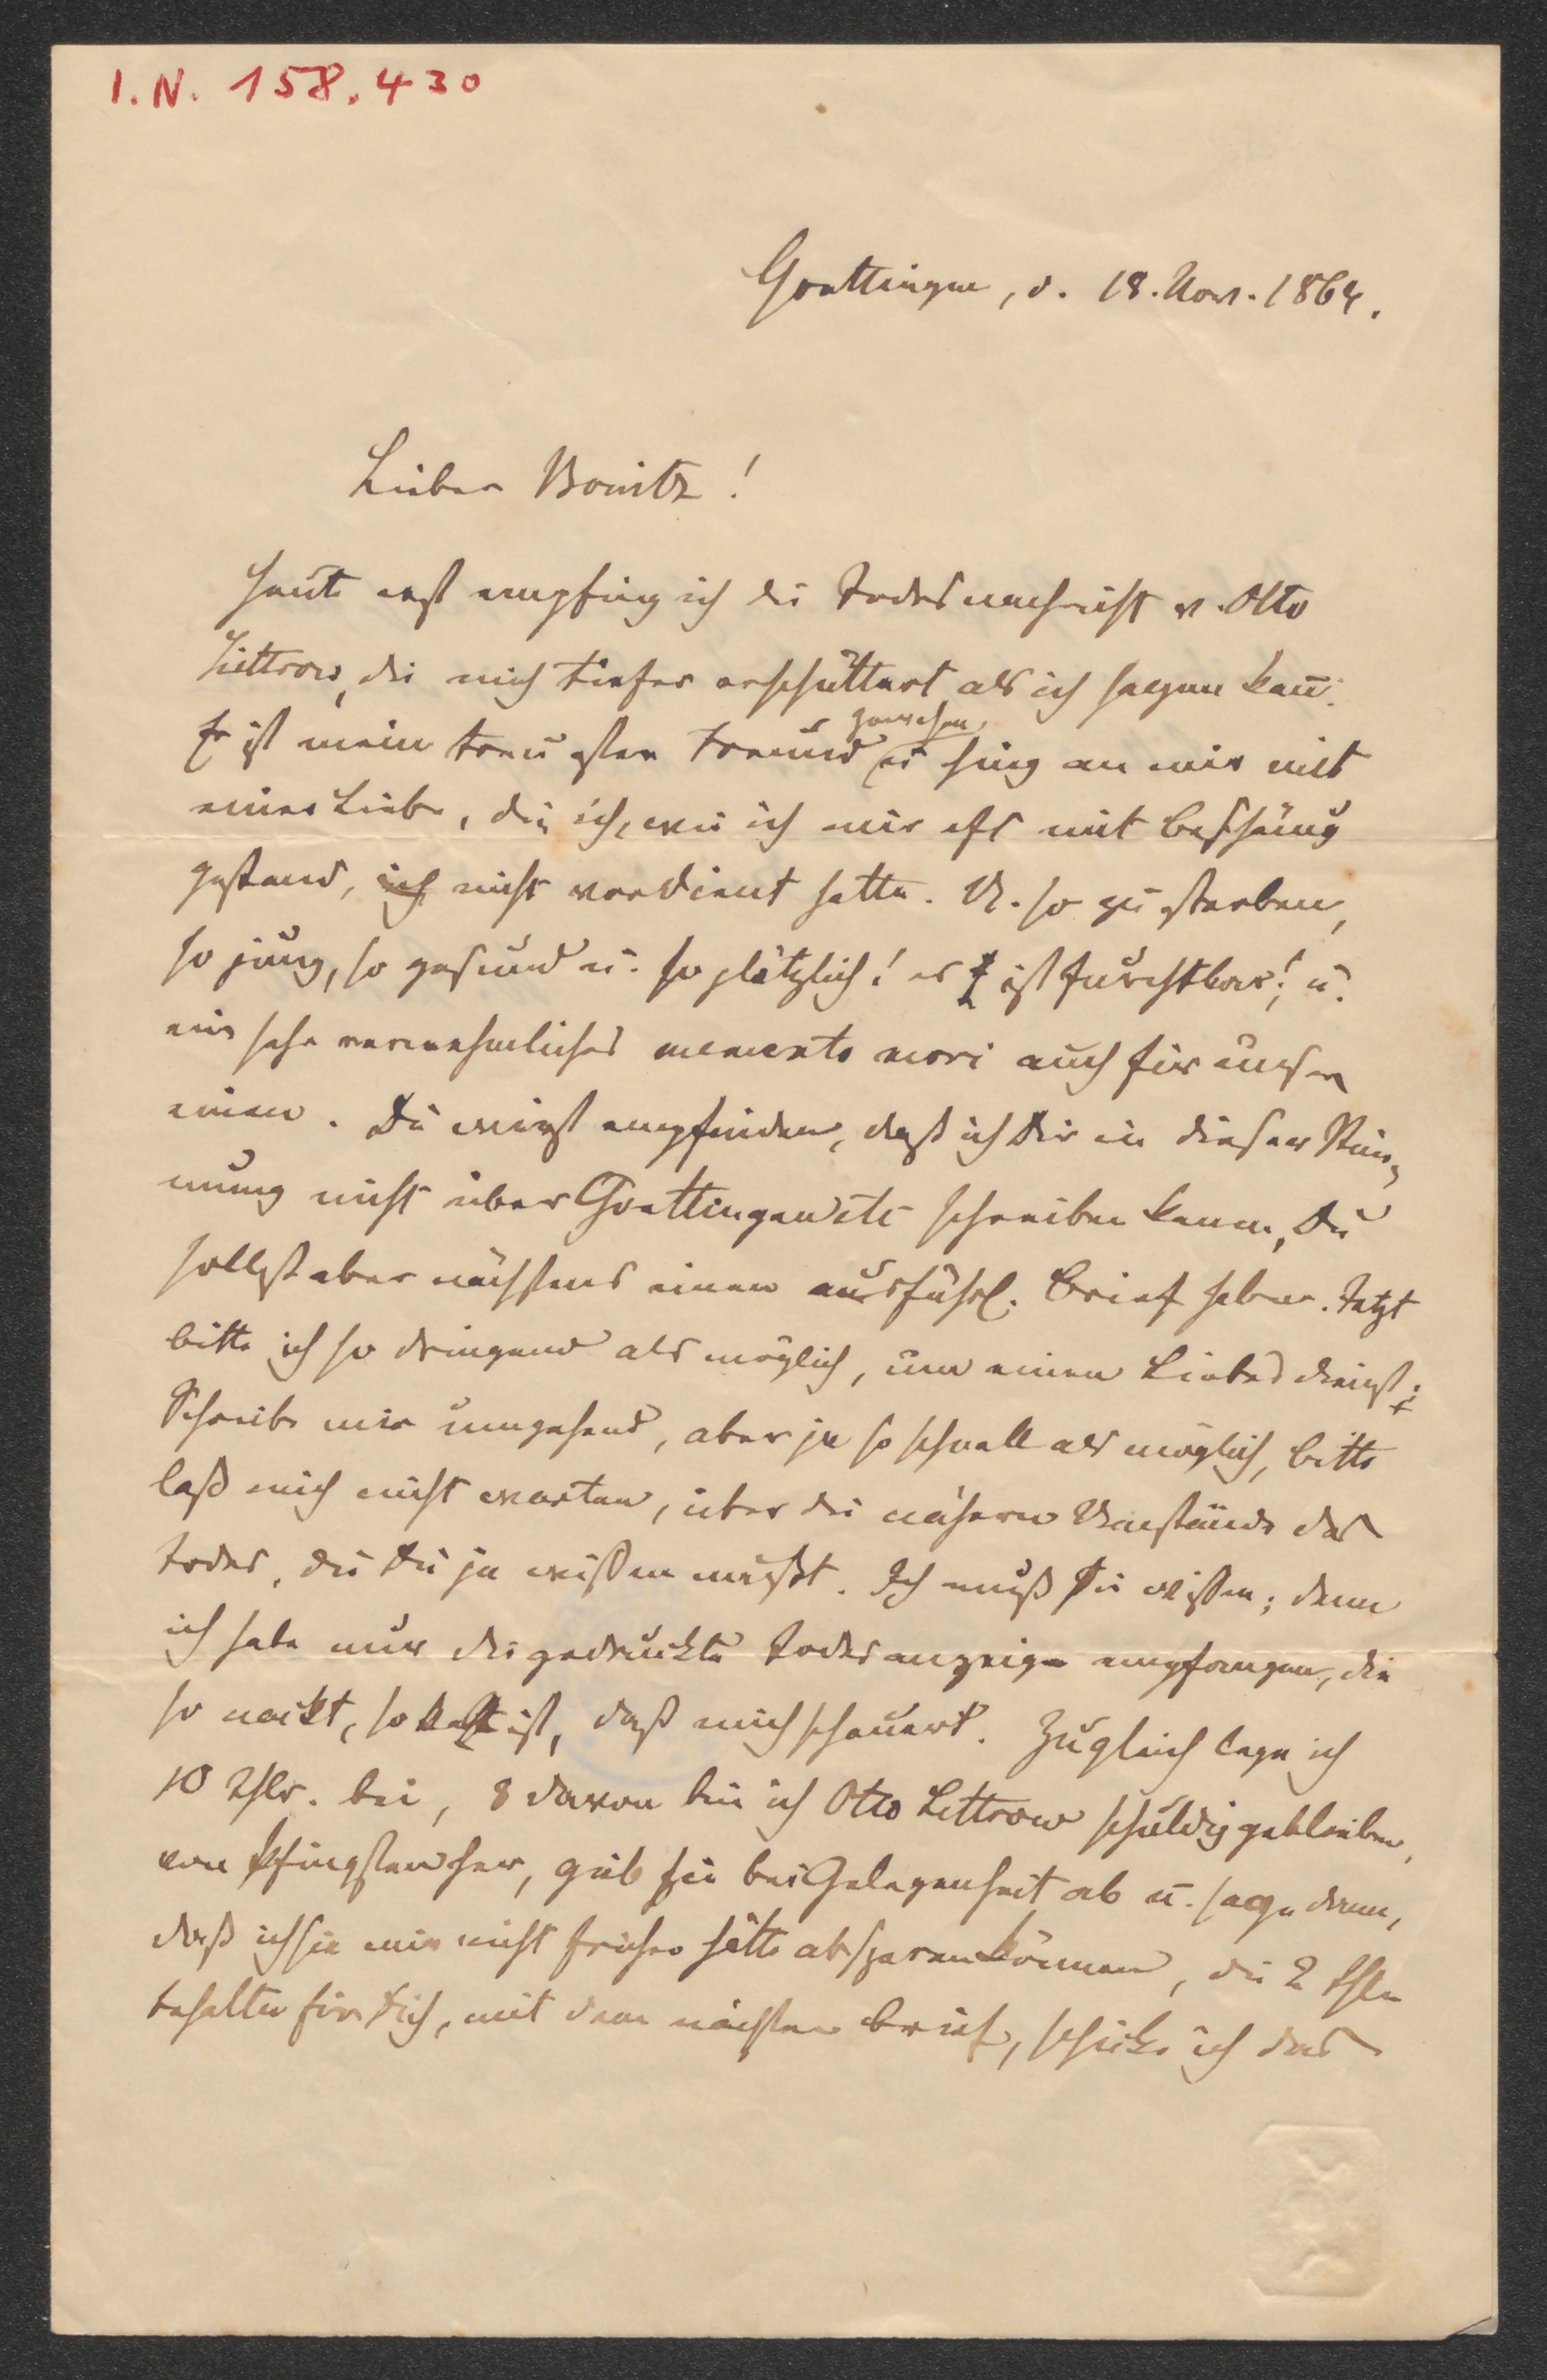 I. N. 158.430
Goettingen, d. 18. Nov. 1864.
Lieber Bonitz!
Heute erst empfing ich die Todesnachricht v. Otto
Littrow, die mich tiefer erschüttert als ich sagen kan̄.
Er ist mein treuster Freund gewesen, u. hing an mir mit
einer Liebe, die ich, wie ich mir oft mit Beschämg
gestand, ich nicht verdient hatte. U. so zu sterben,
so jung, so gesund u. so plötzlich! es ist furchtbar! u.
ein sehr vernehmliches memento mori auch für unser
einen. Du wirst empfinden, daß ich Dir in dieser Stim-
mung nicht über Goettingen etc schreiben kann, Du
sollst aber nächstens einen ausführl. Brief haben. Jetzt
bitte ich so dringend als möglich, um einen Liebesdienst:
Schreibe mir umgehend, aber ja so schnell als möglich, bitte
laß mich nicht warten, über die nähern Umstände des
Todes, die Du ja wissen mußt. Ich muß sie wissen; denn
ich habe nur die gedruckte Todesanzeige empfangen, die
so nackt, so kalt ist, daß mich schauert. Zugleich lege ich
10 Thlr. bei, 8 davon bin ich Otto Littrow schuldig geblieben,
von Pfingsten her, gieb sie bei Gelegenheit ab u. sage dann,
daß ich sie mir nicht früher hätte absparen können, die 2 Thlr
behalte für Dich, mit dem nächsten Brief, schicke ich das